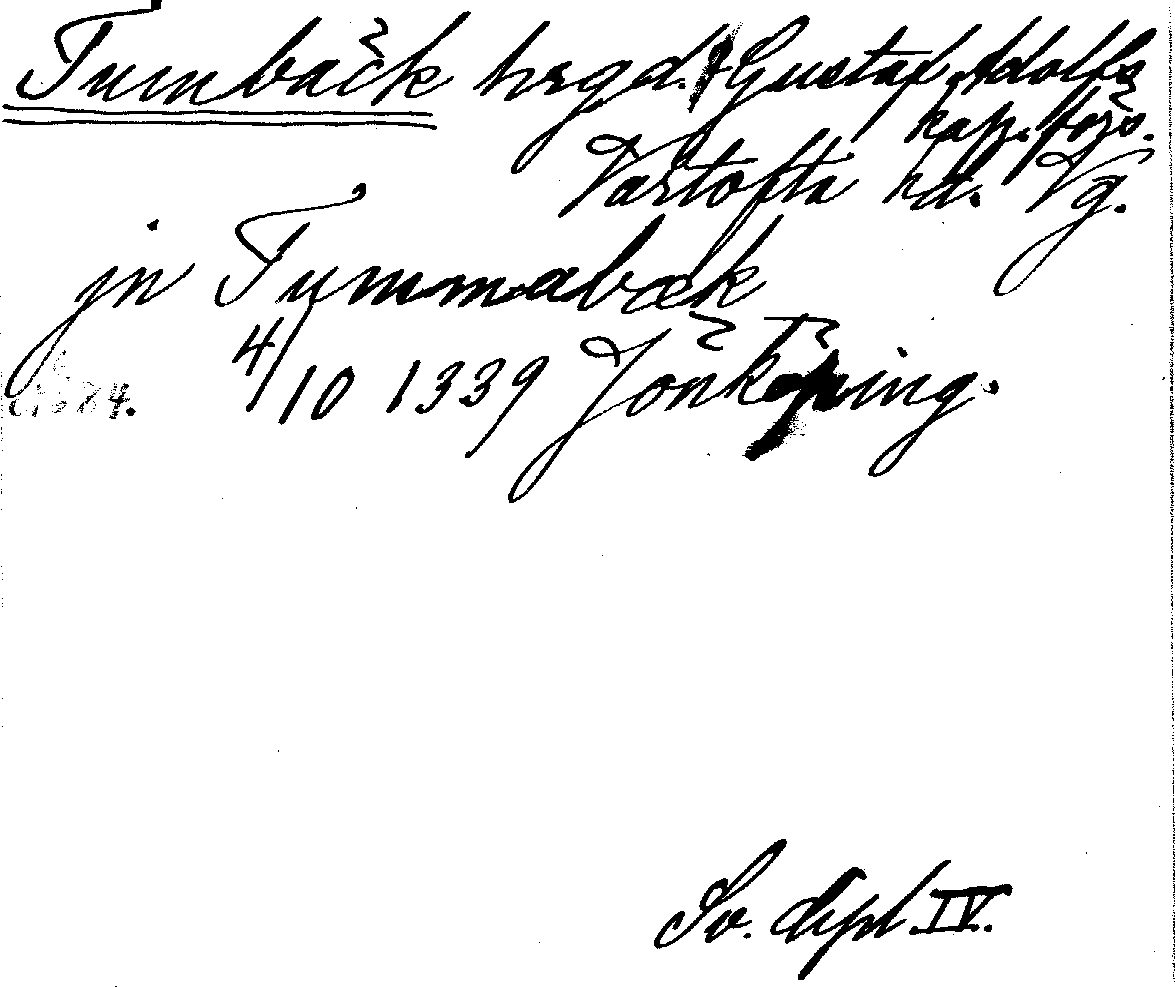 Tumbäck hrgd. Gustaf Adolfs
kap. förs.
Vartofta hd. Vg.
jn Tummabæk
4/10 1339 Jönköping.
Sv. dipl. IV.